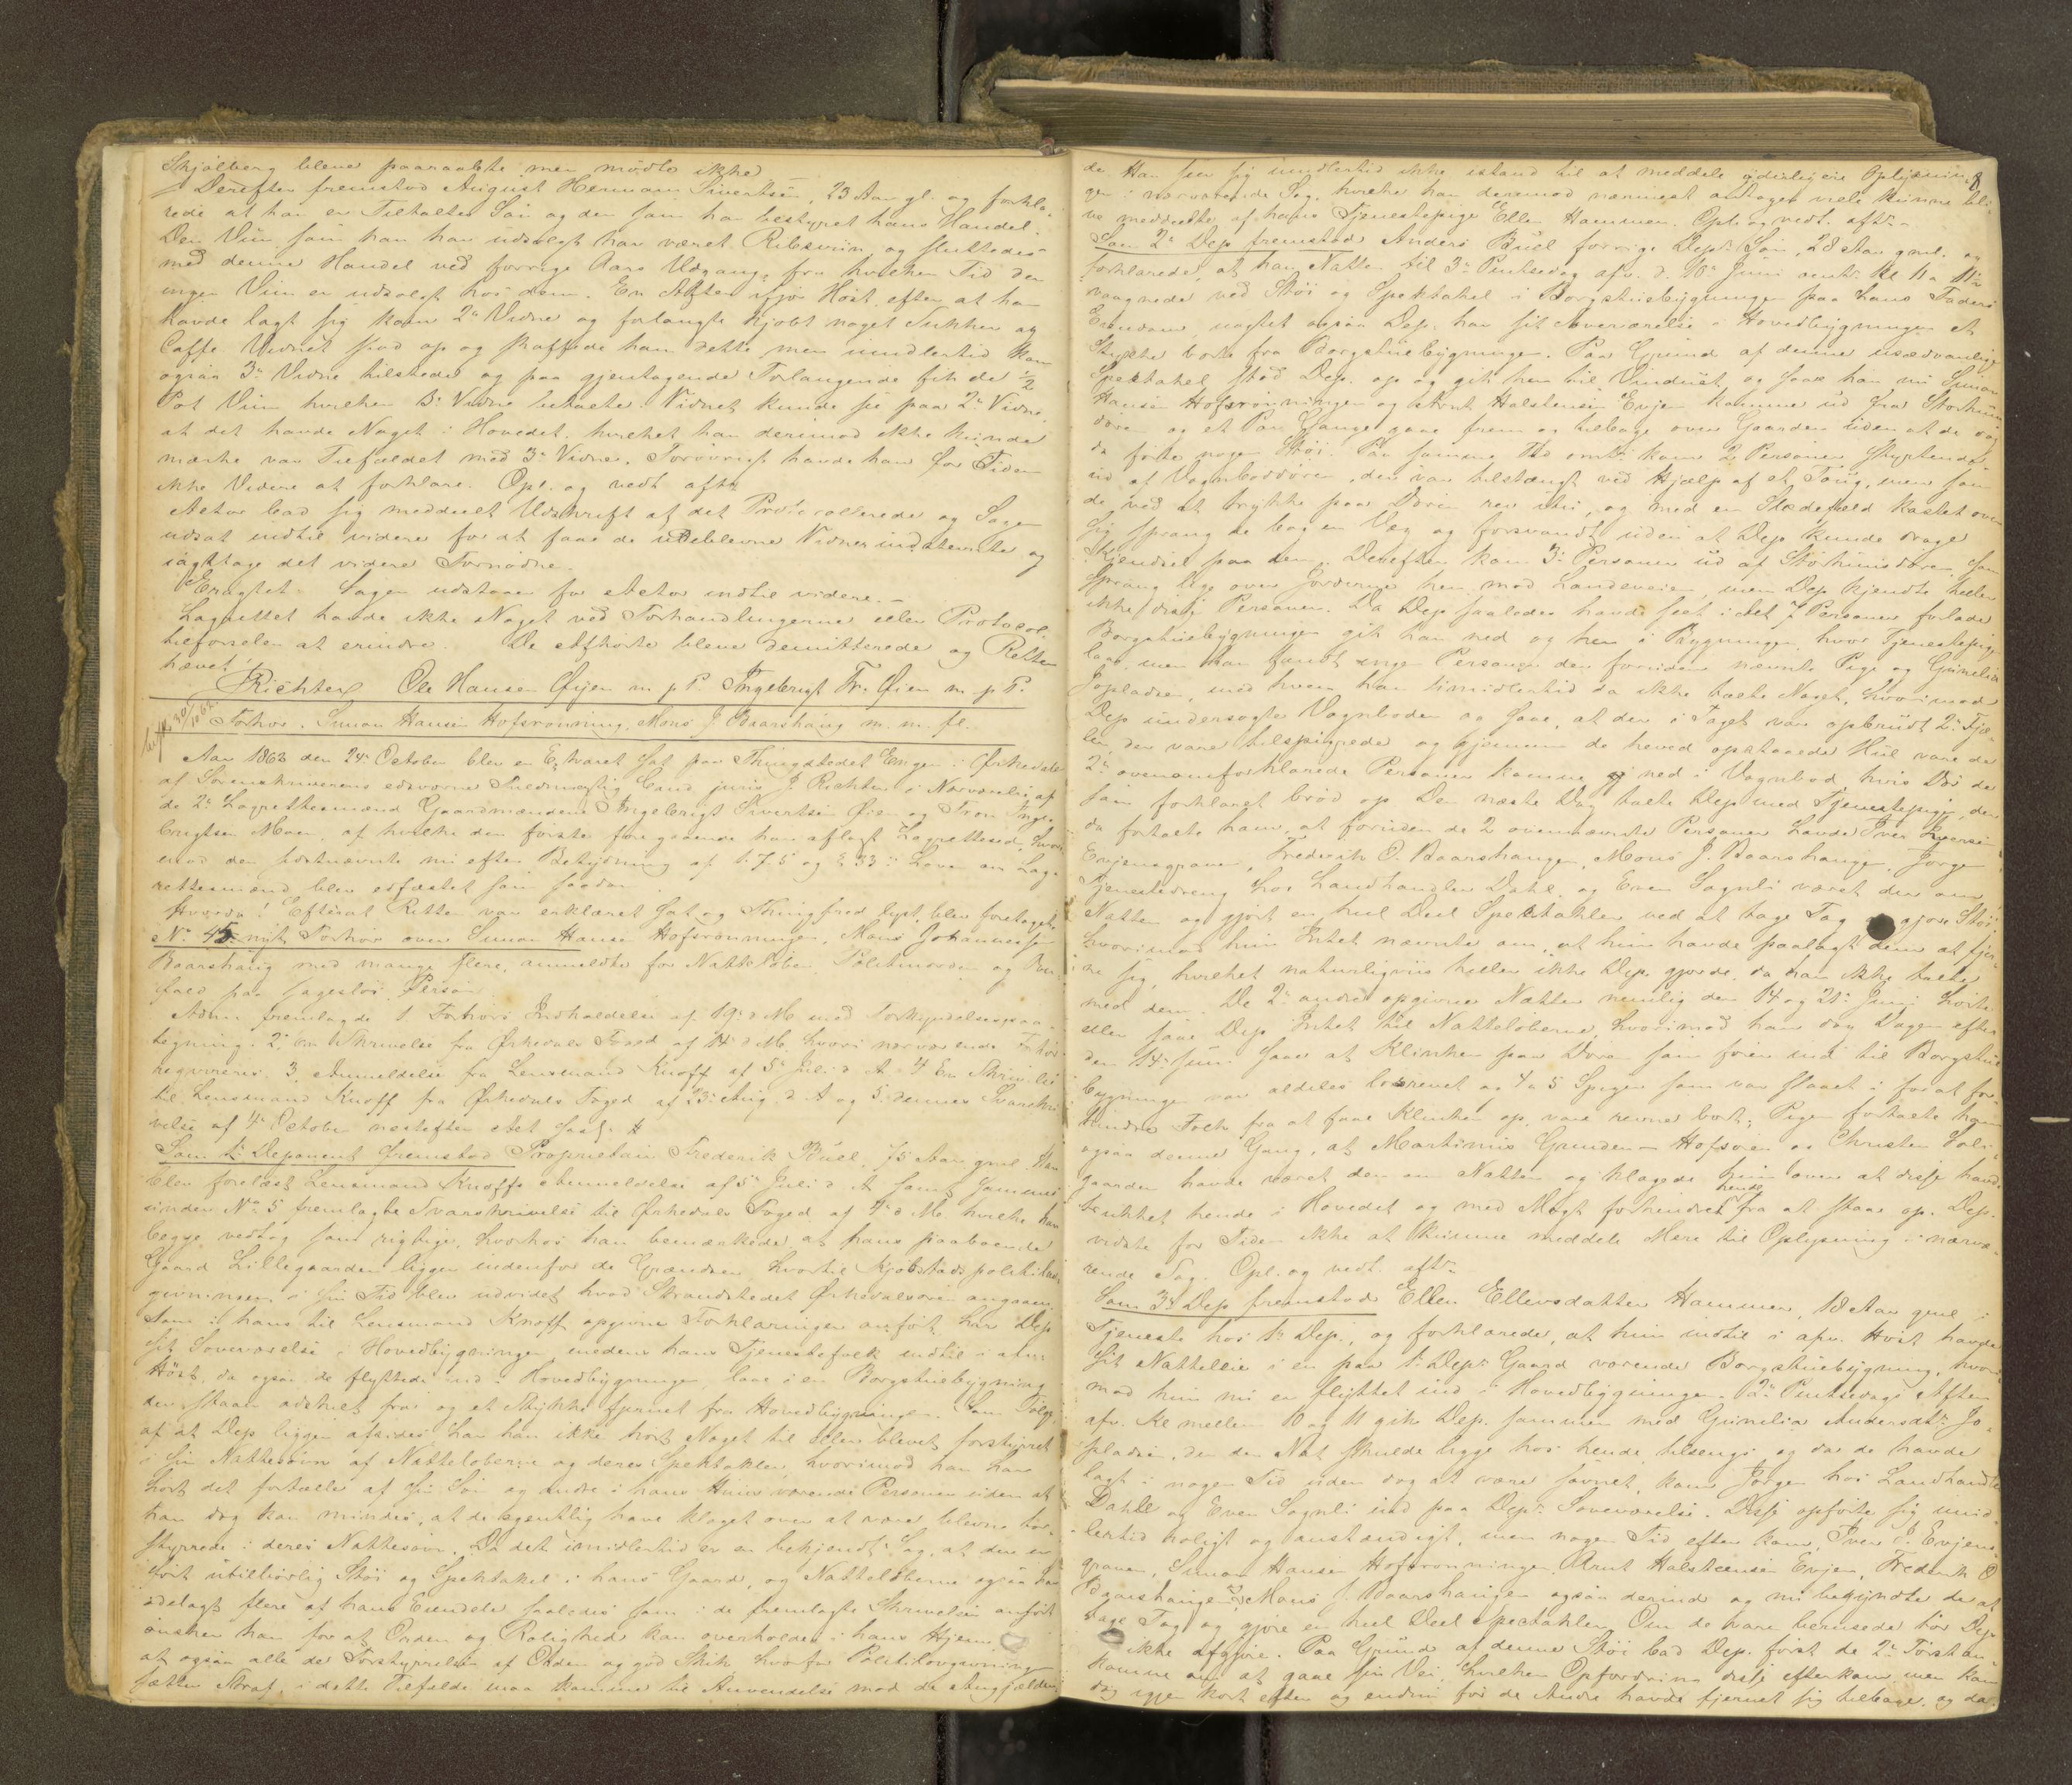 Skjølberg bleve paaraabte men mødte ikke
Derefter fremstod August Hermann Sivertsen, 23 Aar gl. og forkla-
rede at han er Tiltaltes Søn og den som har bestyret hans Handel.
Den Viin som han har udsolgt har været Ribsviin og sluttedes
med denne Handel ved forrige Aars Udgang, fra hvilken Tid der
ingen Viin er udsolgt hos dem. En Aften ifjor Høst, efter at han
havde lagt sig kom 2det Vidne og forlangte kjøbt noget Sukker og
Caffe Vidnet stod op og skaffede ham dette men imidlertid kom
ogsaa 3die Vidne tilstede og paa gjentagende Forlangende fik de ½
Pot Viin hvilken 3die Vidne betalte. Vidnet kunde see paa 2det Vidne,
at det havde Noget i Hovedet, hvilket han derimod ikke kunde
mærke var Tilfældet med 3die Vidne. Forøvrigt havde han for Tiden
ikke Videre at forklare. Opl. og vedt. aftr.
Actor bad sig meddeelt Udskrift af det Protocollerede og Sagen
udsat indtil videre for at faae de udeblevne Vidner indstevnte og
iagttage det videre Fornødne.
Eragtet: Sagen udstaaer for Actor indtil videre. –
Lagrettet havde ikke Noget ved Forhandlingerne eller Protocol-
tilførselen at erindre. De Afhørte bleve demitterede og Retten
hævet.
JRichter Ole Hansen Øyen m. p. P. Ingebrigt Tr. Øien m. p. P.
Forhør. Simon Hansen Hofsrønning, Mons J Baarshaug m. m. fl.
Aar 1863 den 24de October blev en Extraret sat paa Thingstedet Evjen i Ørkedalen
af Sorenskriverens edsvorne Fuldmægtig Cand. juris J. Richter i Nærværelse af
de 2de Lagrettesmænd Gaardmændene Ingebrigt Sivertsen Øien og Tron Inge-
brigtsen Moen, af hvilke den første foregaaende har aflagt Lagrettesed, hvori-
mod den sidstnævnte nu efter Betydning af 1-7-5 og § 33 i Loven om Lag-
rettesmænd blev edfæstet som saadan.
Hvorda! Efterat Retten var erklæret sat og Thingfred lyst, blev foretaget
No 45 nyt Forhør over Simon Hansen Hofsrønningen, Mons Johannessen
Baarshaug med mange flere, anmeldte for Natteløben, Politiuorden og Over-
fald paa sagesløs Person
Adm. fremlagde 1 Forhørs Indkaldelse af 19de d. M. med Forkyndelsespaa-
tegning. 2, en Skrivelse fra Ørkedals Foged af 14de d. M. hvori nærværende Forhør
reqvireres. 3, Anmeldelse fra Lensmand Knoff af 5te Juli d. A. 4 En Skrivelse
til Lensmand Knoff fra Ørkedals Foged af 23de Aug. d. A og 5, dennes Svarskri-
velse af 4de October næstefter Alt saal. #
Som 1ste Deponent fremstod Proprietair Frederik Büel, 75 Aar gml. Han
blev forelæst Lensmand Knoffs Anmeldelse af 5te Juli d. A samt sammes
under No 5 fremlagte Svarskrivelse til Ørkedals Foged af 4de d. M. hvilke han
begge vedtog som rigtige, hvorhos han bemærkede, at hans paaboende
Gaard Lillegaarden ligger indenfor de Grændser hvortil Kjøbstads politilov-
givningen i sin Tid blev udvidet hvad Strandstedet Ørkedalsøren angaaer.
Som i hans til Lensmand Knoff opgivne Forklaringer anført, har Dep.
sit Soveværelse i Hovedbygningen, medens hans Tjenestefolk indtil i afv.
Høst, da ogsaa de flyttede ind i Hovedbygningen, laae i en Borgstuebygning
der staaer adskilt fra og et Stykke fjernet fra Hovedbygningen. Som Følge
af at Dep ligger afsides har han ikke hørt Noget til eller blevet forstyrret
i sin Nattesøvn af Natteløberne og deres Spektakler, hvorimod han har
hørt det fortælle af sin Søn og andre i hans Huus værende Personer uden at
han dog kan mindes, at de egentlig have klaget over at være blevne for-
styrrede i deres Nattesøvn. Da det imidlertid er en bekjendt Sag, at der er
gjort utilbørlig Støi og Spektakel i hans Gaard, og Natteløberne ogsaa har
ødelagt flere af hans Eiendele saaledes som i de fremlagte Skrivelser anført
ønsker han for at Orden og Rolighed kan overholdes i hans Hjem
at ogsaa alle de Forstyrrelser af Orden og god Skik hvorfor Politilovgivningen
sætter Straf, i dette Tilfælde maa komme til Anvendelse mod de Angjældende
8.
de. Han seer sig imidlertid ikke istand til at meddele yderligere Oplysnin-
ger i nærværende Sag, hvilke han derimod nærmest antager vele kunne bli-
ve meddeelte af hans Tjenestepige Ellen Hammer. Opl. og vedt. aftr.
Som 2det Dep fremstod Anders Büel forrige Dept. Søn, 28 Aar gml. og
forklarede, at han Natten til 3die Pintsedag afv. d. 10de Juni omtr. Kl 11 a 11½
vaagnede ved Støi og Spektakel i Borgstuebygningen paa hans Faders
Eiendom uagtet ogsaa Dep. har sit Soveværelse i Hovedbygningen et
Stykke borte fra Borgstuebygningen. Paa Grund af denne usædvanlige
Spektakel stod Dep. op og gik hen til Vinduet og saae han nu Simon
Hansen Hofsrønningen og Arnt Halstensen Evjen komme ud fra Storstue
døren og et Par Gange gaae frem og tilbage over Gaarden uden at de dog
da førte nogen Støi. Paa samme Tid omtr. kom 2 Personer styrtende
ud af Vognboddøren, der var tilstængt ved Hjælp af et Toug, men som
de ved at trykke paa Døren rev itu, og med en Slædefæld kastet over
sig sprang de bag en Væg og forsvandt uden at Dep kunde drage
Kjendsel paa dem. Derefter kom 3de Personer ud af Storhuusdøren, som
sprang lige over Jorderne hen mod Landeveien, men Dep kjendte heller
ikke disse Personer. Da Dep saaledes havde seet idet 7 Personer forlade
Borgstuebygningen gik han ned og hen i Bygningen hvor Tjenestepigen
laae, men han fandt ingen Personer der foruden nævnte Pige og Gunelia
Jopladsen, med hvem han imidlertid da ikke talte Noget, hvorimod
Dep undersøgte Vognboden og saae, at der i Taget var opbrudt 2de Fjæ-
ler, der vare tilspigrede og gjennem de herved opstaaede Hul vare de
2de ovenomforklarede Personer komne ned i Vognbod, hvis Dør de
som forklaret brød op Den næste Dag talte Dep med Tjenestepigen, der
da fortalte ham, at foruden de 2 ovennævnte Personer havde Iver Iversen
Evjensgraven, Frederik O. Baarshaugen, Mons J. Baarshaugen, Jørgen
Tjenestedreng hos Landhandler Dahl, og Even Sognli været der om
Natten og gjort en heel Deel Spektakler ved at tage Tag og gjøre Støi,
hvorimod hun Intet nævnte om, at hun havde paalagt dem at fjer-
ne sig, hvilket naturligviis heller ikke Dep. gjorde, da han ikke talte
med dem. De 2de andre opgivne Nætter nemlig den 14 og 21de Juni hørte
eller saae Dep Intet til Natteløberne, hvorimod han dog Dagen efter
den 14de Juni saae at Klinken paa Døren som fører ind til Borgstue
bygningen var aldeles løsrevet og 4 a 5 Spiger som var slaaet i for at for-
hindre Folk fra at faae Klinken op, vare revne bort; Pigen fortalte ham
ogsaa denne Gang, at Martinus Grunden – Hofsøren og Christen Soli-
gaarden havde været der om Natten og klagede hun over at disse havde
trukket hende i Hovedet og med Magt forhindret hende fra at staae op. Dep.
vidste for Tiden ikke at kunne meddele Mere til Oplysning i nærvæ-
rende Sag. Opl. og vedt. aftr.
Som 3die Dep fremstod Ellen Ellevsdatter Hammer, 18 Aar gml. i
Tjeneste hos 1ste Dep., og forklarede, at hun indtil i afv. Høst havde
sit Natteleie i en paa 1ste Depts Gaard værende Borgstuebygning, hvori-
mod hun nu er flyttet ind i Hovedbygningen. 2den Pintsedags Aften
afv. Kl mellem 10 og 11 gik Dep. sammen med Gunelia Andersdtr Jo-
pladsen, der den Nat skulde ligge hos hende tilsengs og da de havde
lagt i nogen Tid uden dog at være søvnet, kom Jørgen hos Landhandler
Dahl og Even Sognli ind paa Depts Soveværelse. Disse opførte sig imid-
lertid roligt og anstændigt, men nogen Tid efter kom Iver I. Evjens-
graven, Simon Hansen Hofsrønningen, Arnt Halsteensen Evjen, Frederik O
Baarshaugen og Mons J. Baarshaugen ogsaa derind og nu begyndte de at
tage Tag og gjøre en heel Deel Spectakler. Om de vare berusede tør Dep
ikke afgjøre. Paa Grund af denne Støi bad Dep. først de 2de Førstan-
komne om at gaae sin Vei, hvilken Opfordring disse efterkom men kom
dog igjen kort efter og endnu før de Andre havde fjernet sig tilbage, og da